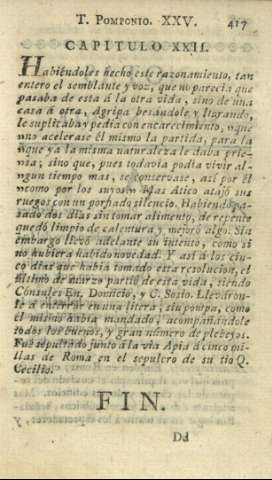 T. POMPONIO. XXV. 417
CAPITULO XXII.
Habiéndoles hecho este razonamiento, tan
entero el semblante y voz, que no parecia que
pasaba de esta á la otra vida, sino de una
casa á otra, Agripa besándole y llorando,
le suplicaba y pedia con encarecimiento, que
no acelerase él mismo la partida, para la
que ya á la misma naturaleza le daba prie-
sa; sino que, pues todavia podia vivir al-
gun tiempo mas, se conservase, así por él
como por los suyos. Mas Atico atajó sus
ruegos con un porfiado silencio. Habiendo pa-
sado dos dias sin tomar alimento, de repente
quedó limpio de calentura y mejoró algo. Sin
embargo llevó adelante su intento, como si
no hubiera habido novedad. Y así á los cin-
co dias que habia tomado esta resolucion, el
último de marzo partió de esta vida, siendo
Cónsules Cn. Domicio, y C. Sosio. Llevaron-
le á enterrar en una litera, sin pompa, como
él mismo habia mandado, acompañándole
todos los buenos, y gran número de plebeyos.
Fue sepultado junto á la via Apia á cinco mi-
llas de Roma en el sepulcro de su tio Q.
Cecilio.
FIN.
Dd